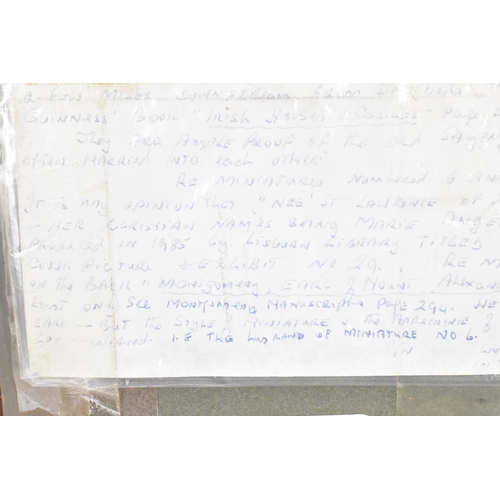 a few miles downstream from
Guinness' Book "Irish Houses & Castles" Page
They are ample proof of the old saying
often married into each other"
Re miniatures numbered 6 and
It is my opinion that "Nee' St Lawrance of
- Her Christian names being Marie Ange
Produced in 1985 by Lisburn Library titled
Cover picture & exhibit No 29. Re M
on the back "Montgomery, Earl of Mount Alexand
last one See Montgomery Manuscripts Page 294. He
Earl - But the style of miniature & the
husband. I.E the husband of miniature No 6.